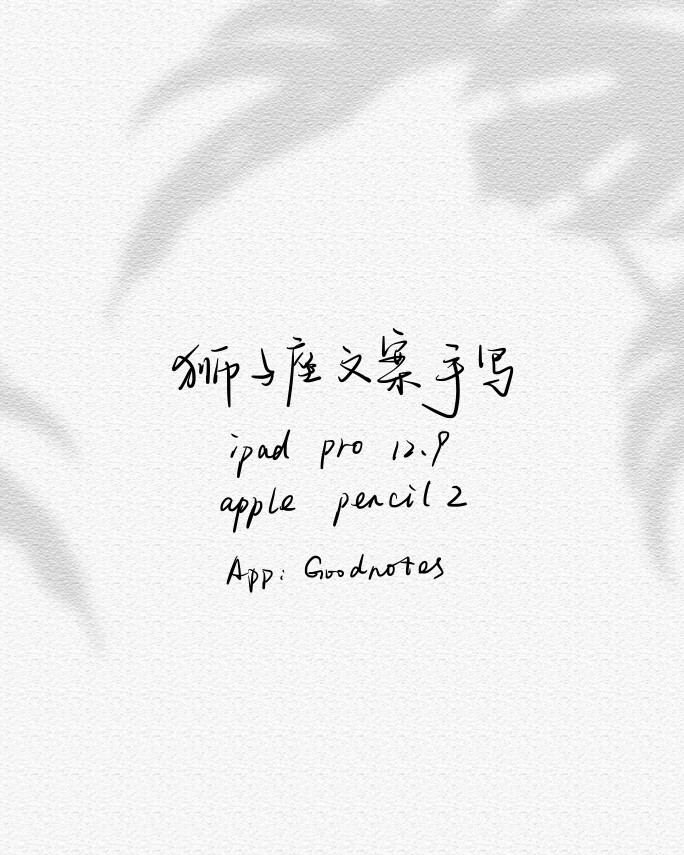 狮子座文案手写
ipad pro 12.9
apple pencil 2
App: Goodnotes